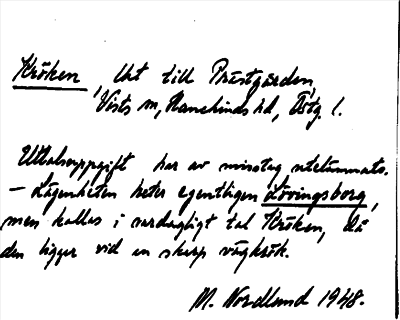 Kröken, lht till Prästgården,
Vists sn, Hanekinds hd, Östg. l.
Uttalsuppgift har av misstag utelämnats.
– Lägenheten heter egentligen Lövingsborg,
men kallas i vardagligt tal Kröken, då
den ligger vid en skarp vägkrök.
M. Nordlund 1948.